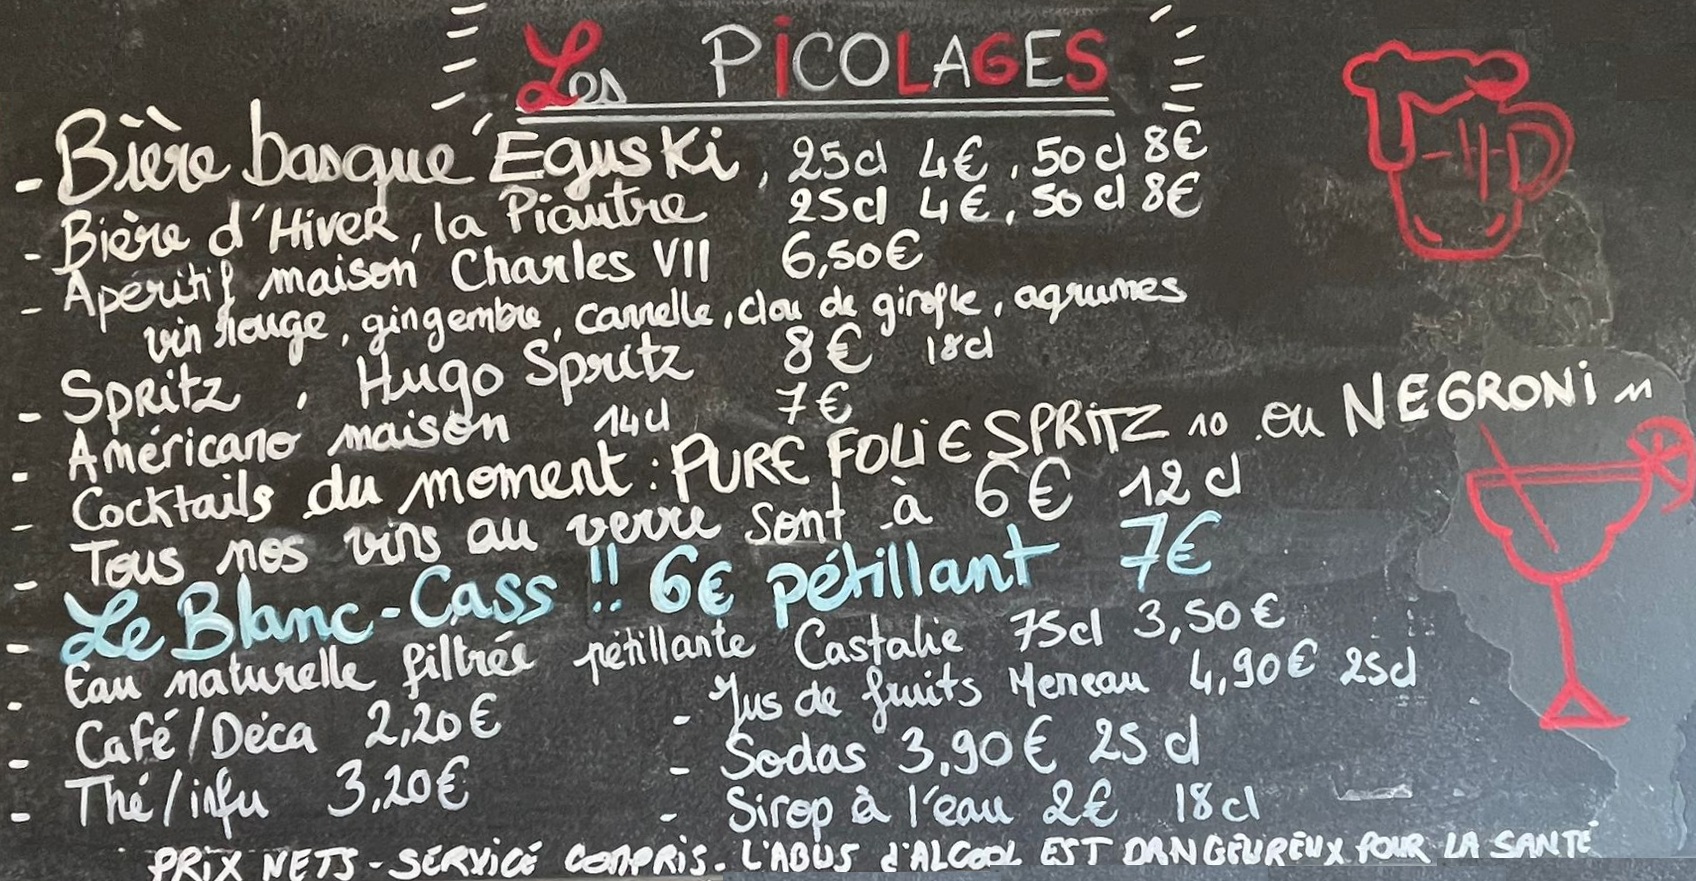 Les PiCOLAGES
- Bière basque Eguski, 25cl 4€, 50cl 8€
- Bière d'Hiver, la Piautre 25cl 4€, 50cl 8€
- Apéritif maison Charles VII 6,50€
vin rouge, gingembre, cannelle, clou de girofle, agrumes
- Spritz, Hugo Spritz 8€ 18cl
- Américano maison 14cl 7€
- Cocktails du moment : PURE FOLIE SPRITZ 10 ou NEGRONi 11
- Tous nos vins au verre sont à 6€ 12cl
- Le Blanc-Cass !! 6€ pétillant 7€
- Eau naturelle filtrée pétillante Castalie 75cl 3,50€
- Café/Déca 2,20€
- Thé/infu 3,20€
- Jus de fruits Meneau 4,90€ 25cl
- Sodas 3,90€ 25cl
- Sirop à l'eau 2€ 18cl
PRIX NETS - SERVICE COMPRIS. L'ABUS d'ALCOOL EST DANGEUREUX POUR LA SANTÉ